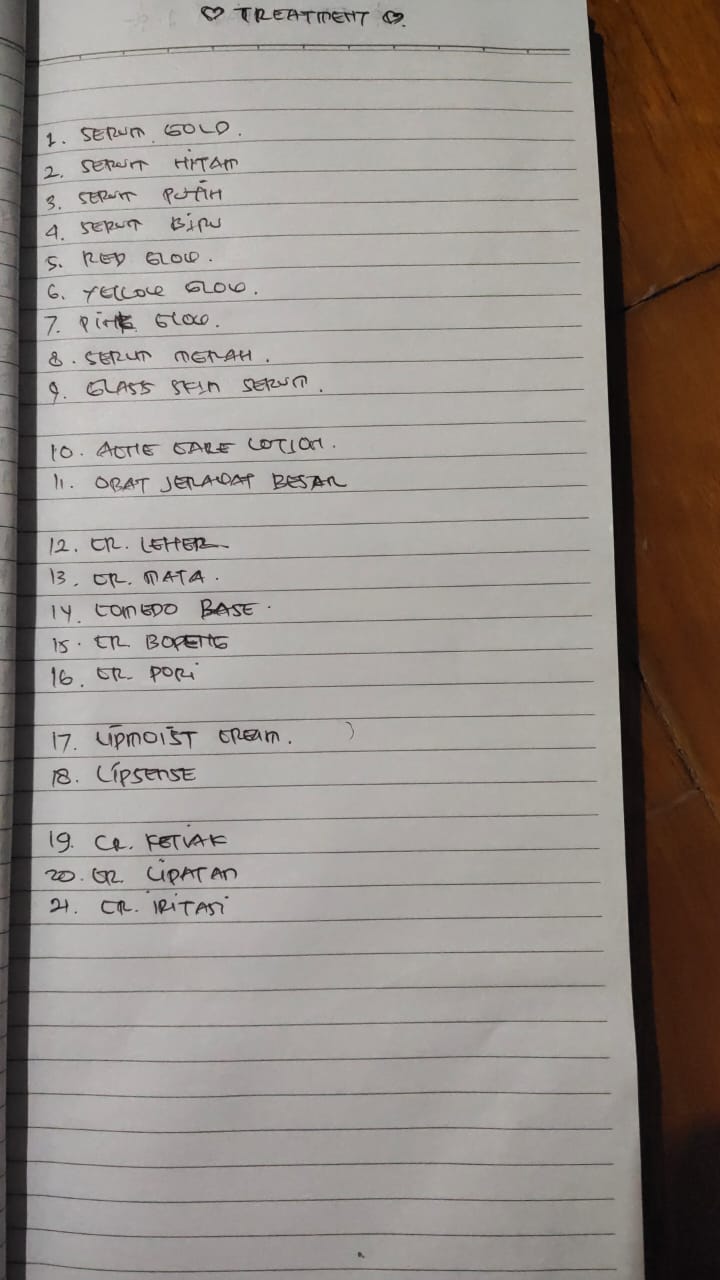 ♡ TREATMENT ♡.
1. SERUM GOLD.
2. SERUM HITAM
3. SERUM PUTIH
4. SERUM BIRU
5. RED GLOW.
6. YELLOW GLOW.
7. PINK GLOW.
8. SERUM MERAH.
9. GLASS SKIN SERUM.
10. ACNE CARE LOTION.
11. OBAT JERAWAT BESAR
12. CR. LEHER
13. CR. MATA.
14. COMEDO BASE.
15. CR BOPENG
16. CR. PORI
17. LIPMOIST CREAM. )
18. LIPSENSE
19. CR. KETIAK
20. CR. LIPATAN
21. CR. IRITASI